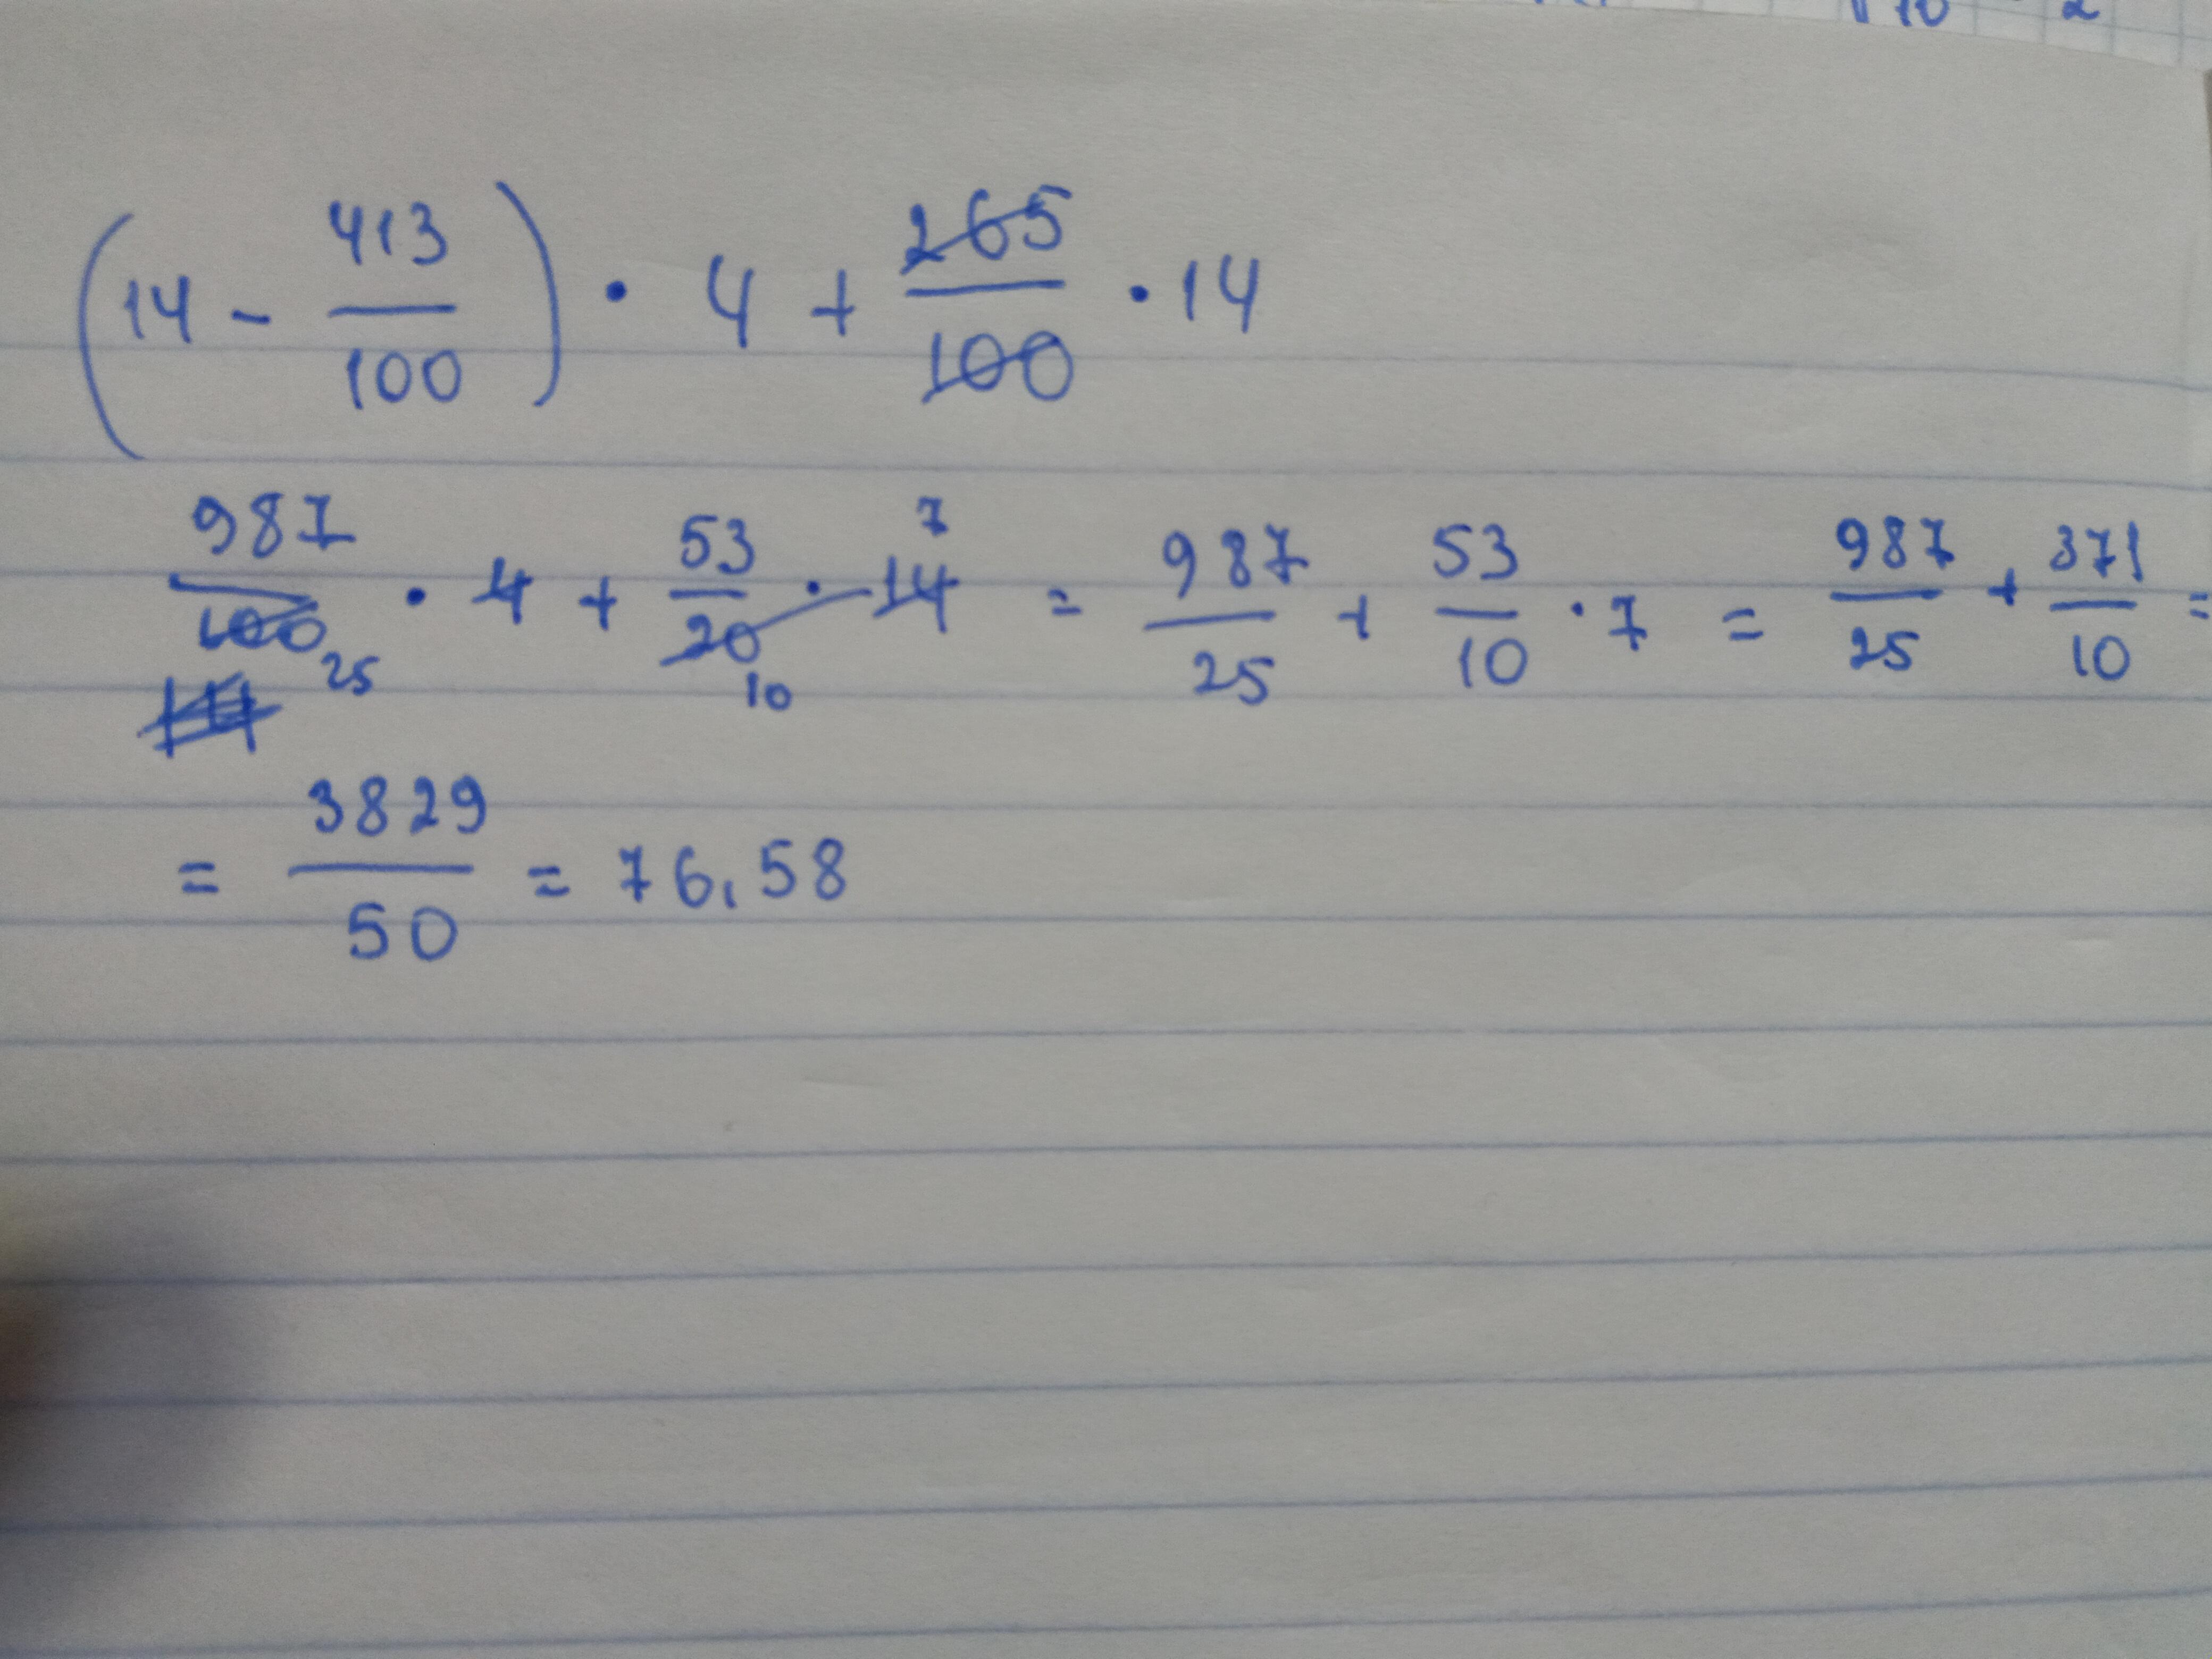 √10 2
(14 - 413/100) · 4 + 265/100 · 14
987/100 25 · 4 + 53/20 10 · 14 7 = 987/25 + 53/10 · 7 = 987/25 + 371/10 =
= 3829/50 = 76,58